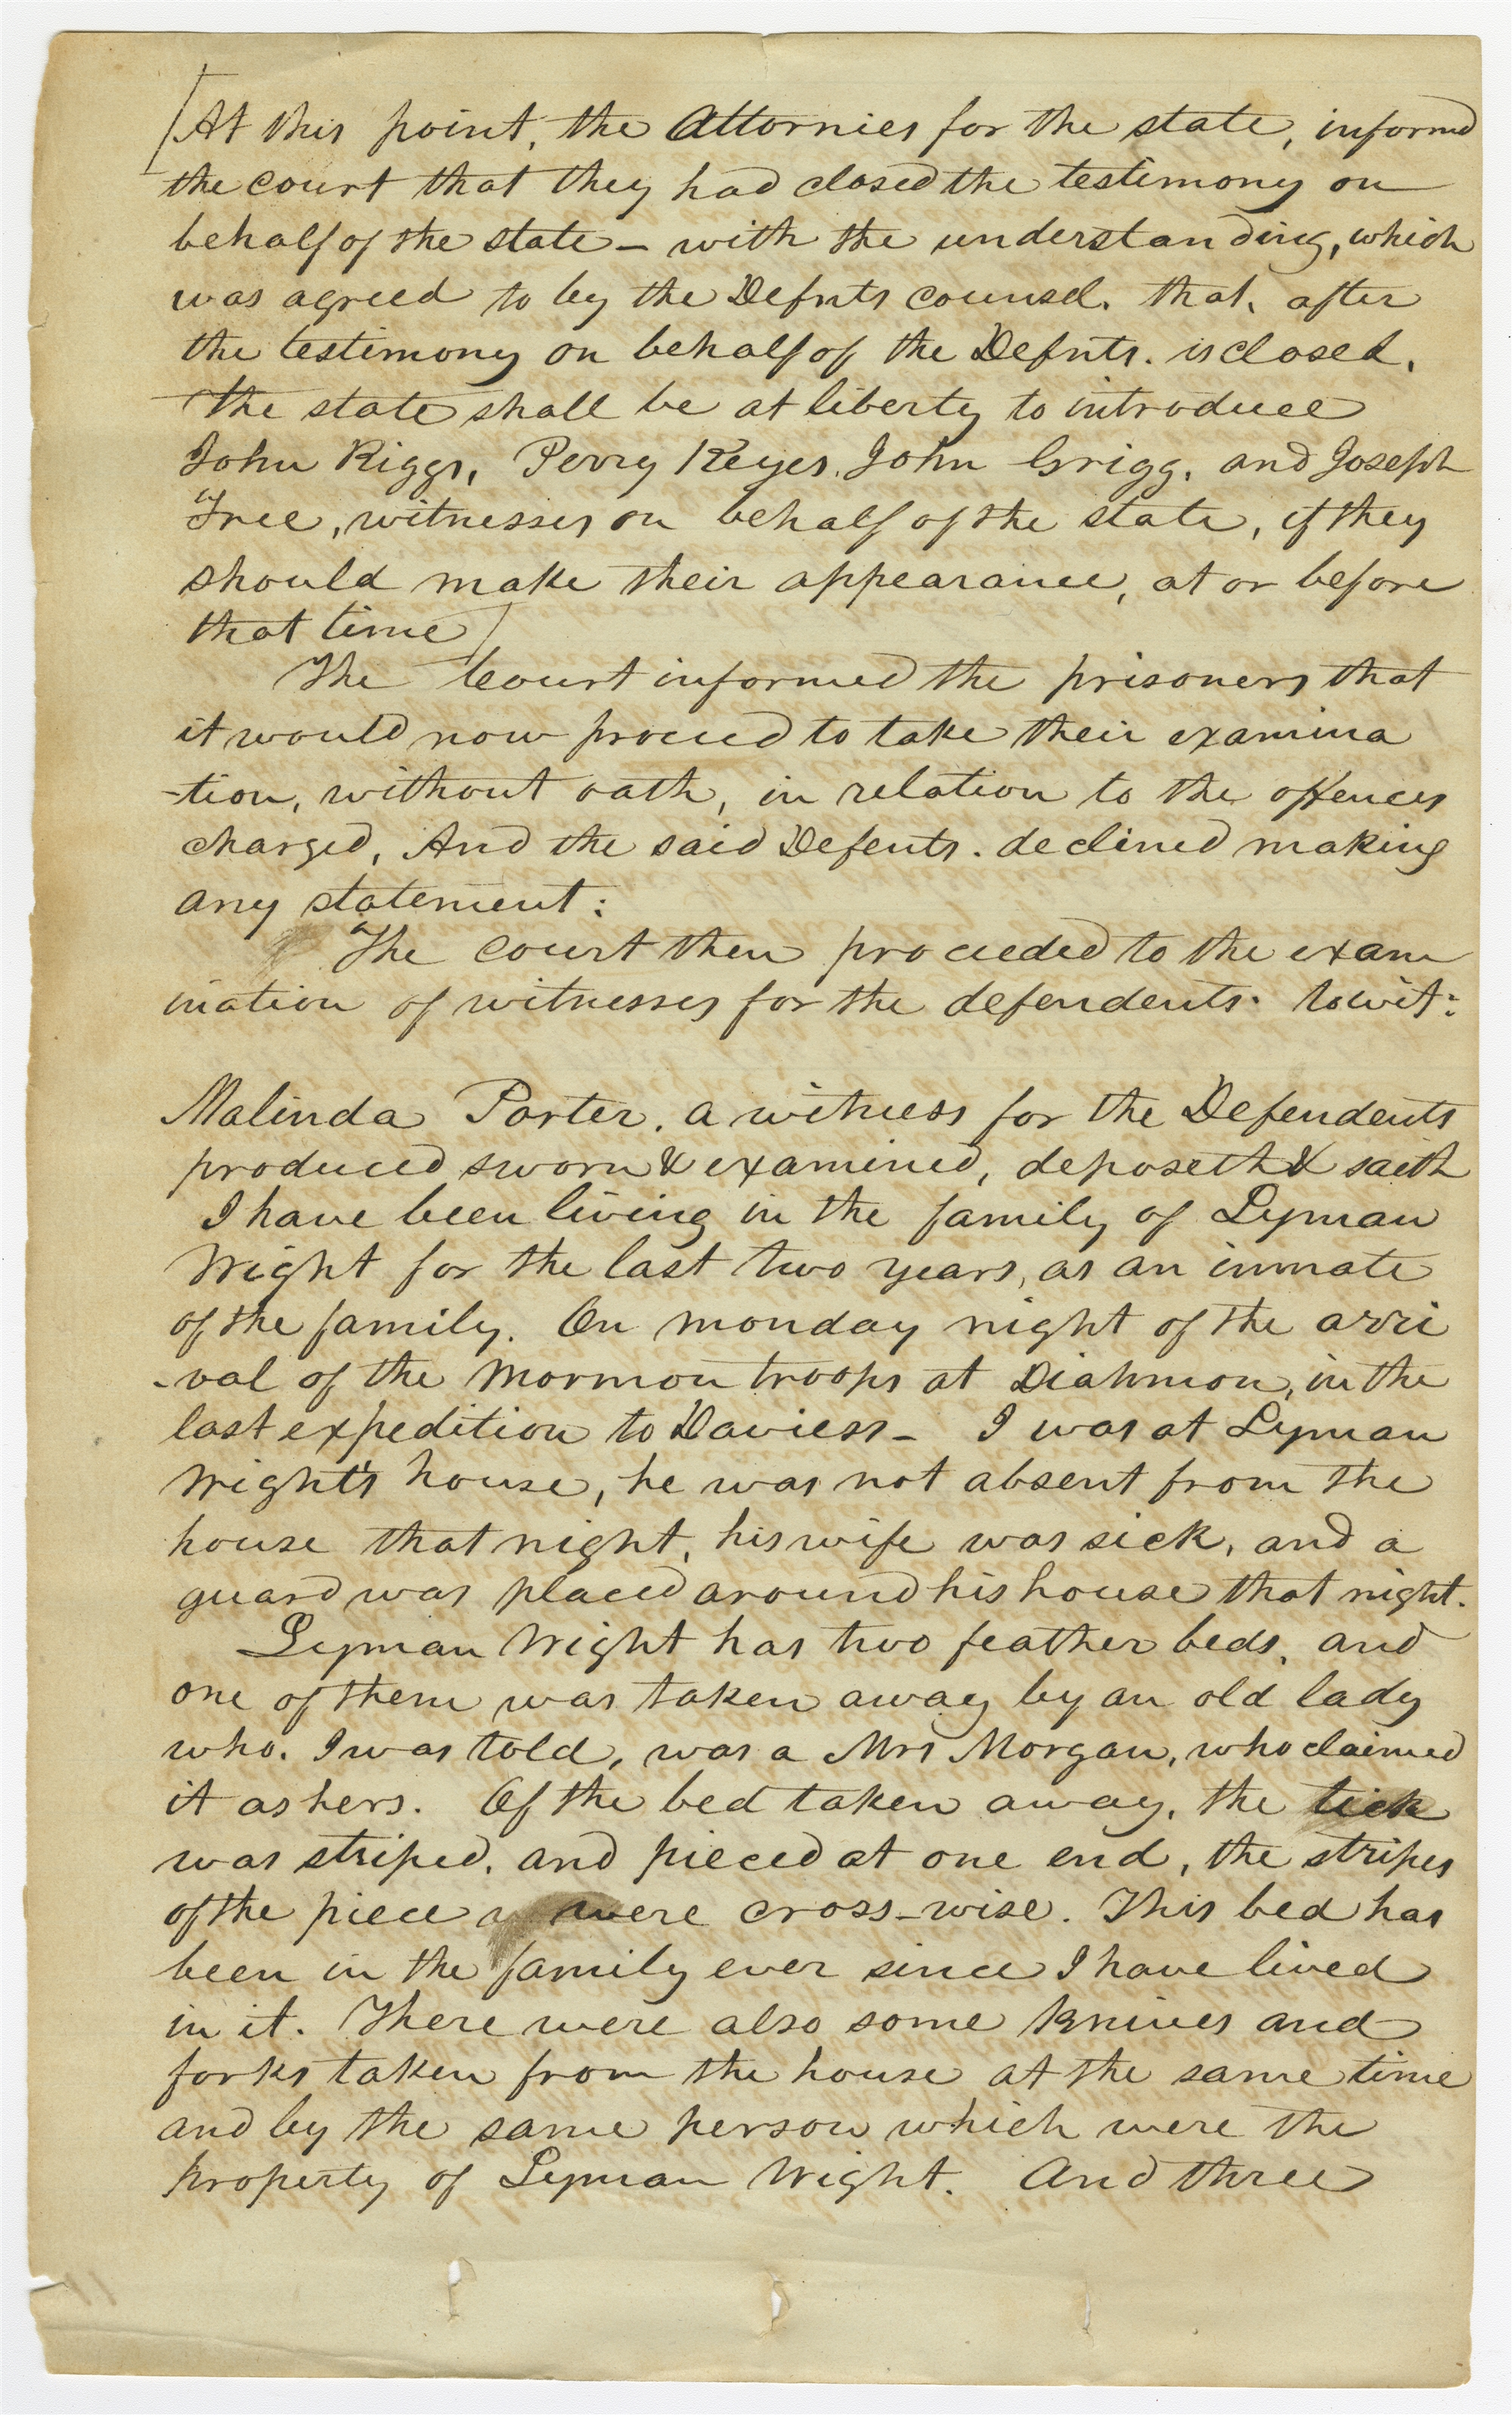 [At this point, the Attornies for the state, informed
the court that they had closed the testimony on
behalf of the state – with the understanding, which
was agreed to by the Defnts counsel. that, after
the testimony on behalf of the Defnts. is closed,
the state shall be at liberty to introduce
John Riggs, Perry Keyes, John Grigg, and Joseph
Free, witnesses on behalf of the state, if they
should make their appearance, at or before
that time]
The Court informed the prisoners that
it would now proceed to take their examina
-tion, without oath, in relation to the offences
charged, And the said Defents. declined making
any statement:
The court then proceeded to the exam
ination of witnesses for the defendents. towit:
Malinda Porter, a witness for the Defendents
produced sworn & examined, deposeth & saith
I have been living in the family of Lyman
Wight for the last two years, as an inmate
of the family. On monday night of the arri
-val of the Mormon troops at Diahmon, in the
last expedition to Daviess – I was at Lyman
Wight's house, he was not absent from the
house that night, his wife was sick, and a
guard was placed around his house that night.
Lyman Wight has two feather beds, and
one of them was taken away by an old lady
who. I was told, was a Mrs Morgan, who claimed
it as hers. Of the bed taken away, the tick
was striped, and pieced at one end, the stripes
of the piece were cross-wise. This bed has
been in the family ever since I have lived
in it. There were also some knives and
forks taken from the house at the same time
and by the same person which were the
property of Lyman Wight. And three